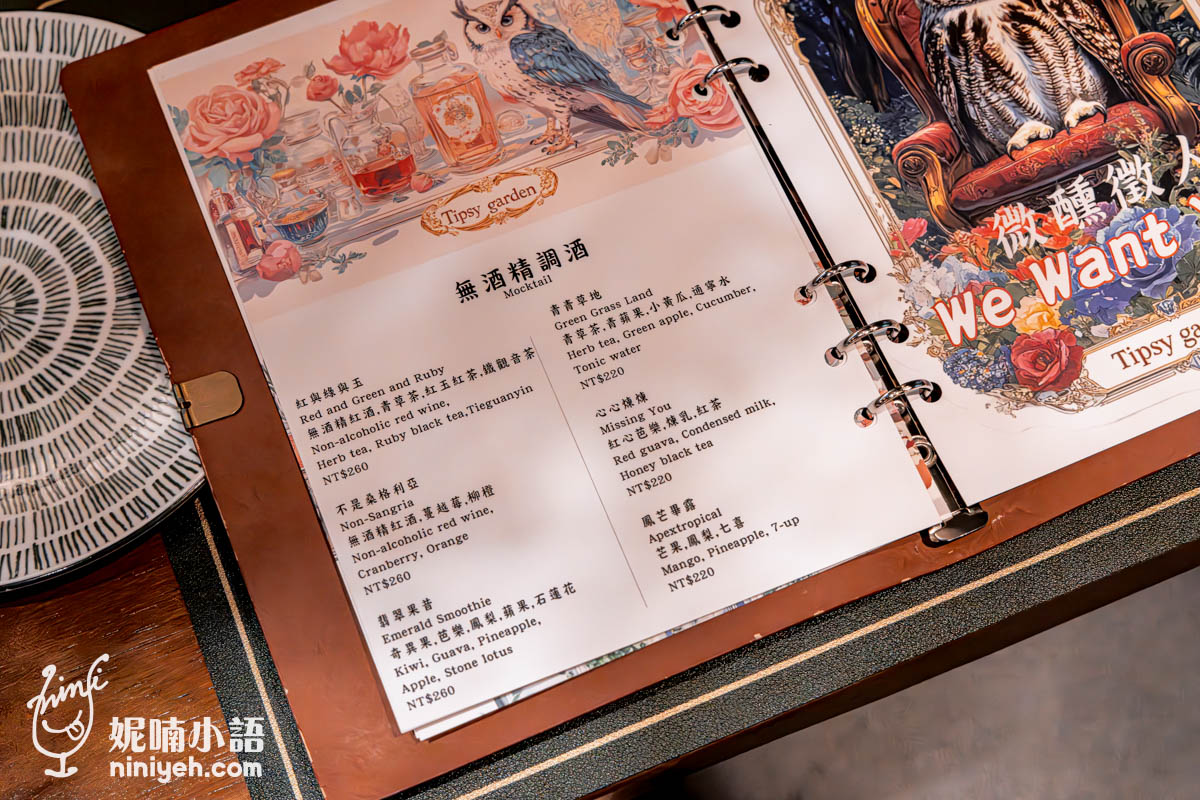 Tipsy garden
無酒精調酒
Mocktail
紅與綠與玉
Red and Green and Ruby
無酒精紅酒,青草茶,紅玉紅茶,鐵觀音茶
Non-alcoholic red wine,
Herb tea, Ruby black tea,Tieguanyin
NT$260
不是桑格利亞
Non-Sangria
無酒精紅酒,蔓越莓,柳橙
Non-alcoholic red wine,
Cranberry, Orange
NT$260
翡翠果昔
Emerald Smoothie
奇異果,芭樂,鳳梨,蘋果,石蓮花
Kiwi, Guava, Pineapple,
Apple, Stone lotus
NT$260
青青草地
Green Grass Land
青草茶,青蘋果,小黃瓜,通寧水
Herb tea, Green apple, Cucumber,
Tonic water
NT$220
心心煉煉
Missing You
紅心芭樂,煉乳,紅茶
Red guava, Condensed milk,
Honey black tea
NT$220
鳳芒畢露
Apextropical
芒果,鳳梨,七喜
Mango, Pineapple, 7-up
NT$220
微醺徵人
We Want
Tipsy ga
妮喃小語
niniyeh.com